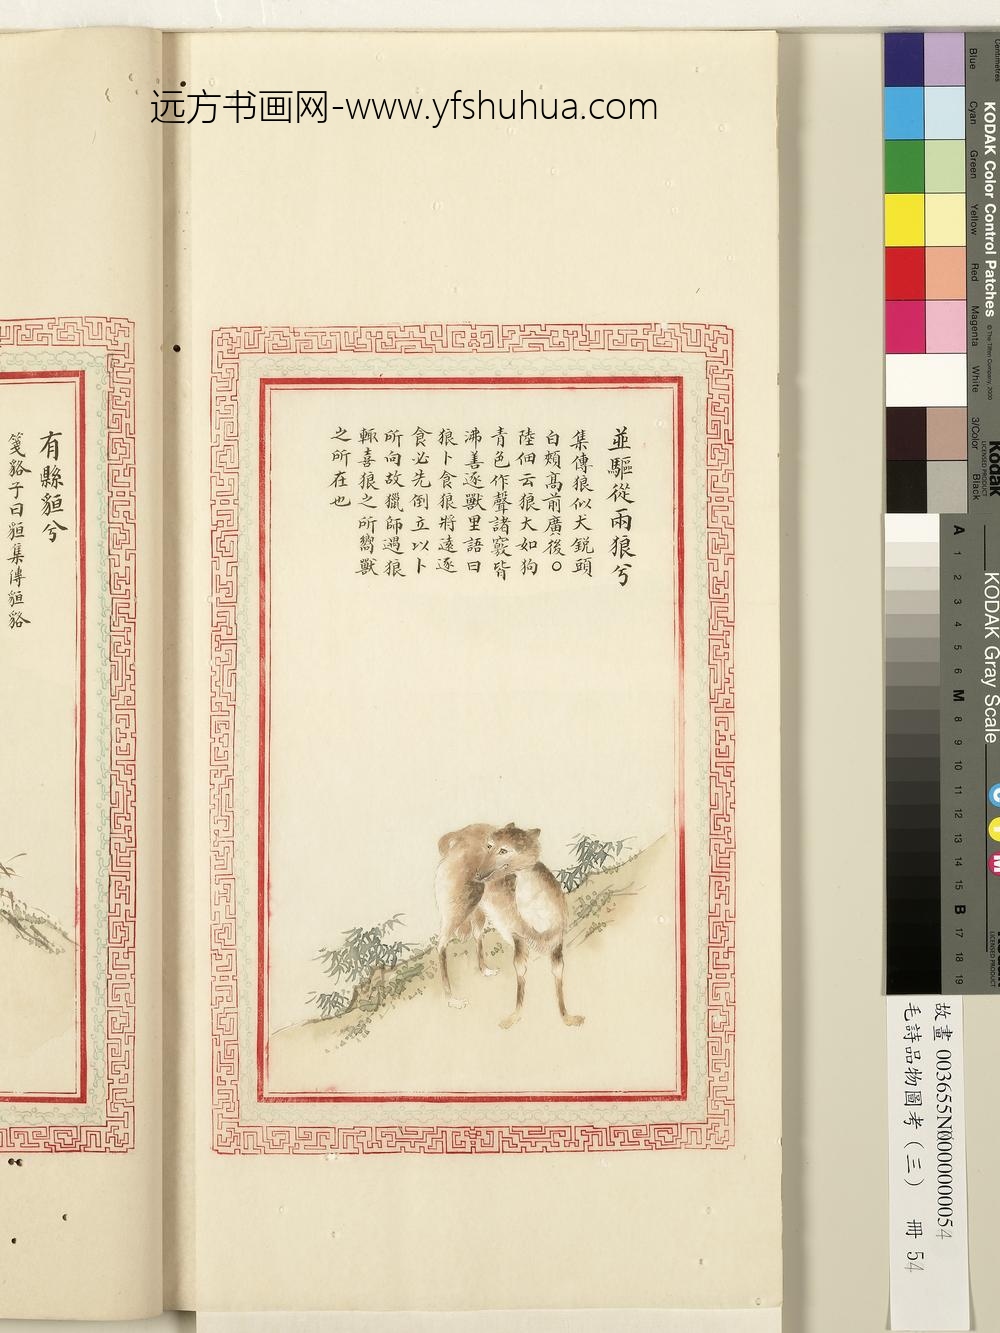 远方书画网-www.yfshuhua.com
並驅從兩狼兮
集傳狼似犬銳頭
白頰高前廣後○
陸佃云狼大如狗
青色作聲諸竅皆
沸善逐獸里語曰
狼卜食狼將遠逐
食必先倒立以卜
所向故獵師遇狼
輒喜狼之所嚮獸
之所在也
有縣貆兮
箋貉子曰貆集傳貆貉
KODAK Color Control Patches
Blue
Cyan
Green
Yellow
Red
Magenta
White
3/Color
Black
Centimetres
© The Tiffen Company, 2000
Kodak
LICENSED PRODUCT
KODAK Gray Scale
A 1 2 3 4 5 6 M 8 9 10 11 12 13 14 15 B 17 18 19
C
Y
M
故畫 003655N000000054
毛詩品物圖考(三) 冊 54